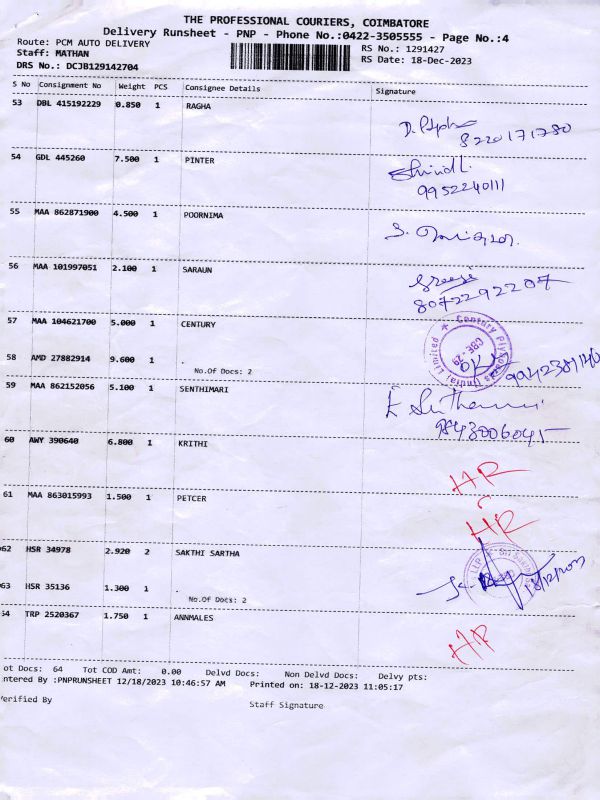 THE PROFESSIONAL COURIERS, COIMBATORE
Delivery Runsheet - PNP - Phone No.:0422-3505555 - Page No.:4
Route: PCM AUTO DELIVERY
RS No.: 1291427
Staff: MATHAN
RS Date: 18-Dec-2023
DRS No.: DCJB129142704
S No Consignment No Weight PCS Consignee Details Signature
53 DBL 415192229 0.850 1 RAGHA
8220171780
54 GDL 445260 7.500 1 PINTER
9952240111
55 MAA 862871900 4.500 1 POORNIMA
56 MAA 101997051 2.100 1 SARAUN
8072292207
57 MAA 104621700 5.000 1 CENTURY
Century Plyboards (India) Limited ★
CBE - 29
58 AMD 27882914 9.600 1
No.Of Docs: 2
59 MAA 862152056 5.100 1 SENTHIMARI
9843006045
60 AWY 390640 6.800 1 KRITHI
HR
61 MAA 863015993 1.500 1 PETCER
HR
62 HSR 34978 2.920 2 SAKTHI SARTHA
18/12/2023
63 HSR 35136 1.300 1
No.Of Docs: 2
54 TRP 2520367 1.750 1 ANNMALES
HR
ot Docs: 64 Tot COD Amt: 0.00 Delvd Docs: Non Delvd Docs: Delvy pts:
ntered By :PNPRUNSHEET 12/18/2023 10:46:57 AM Printed on: 18-12-2023 11:05:17
erified By
Staff Signature